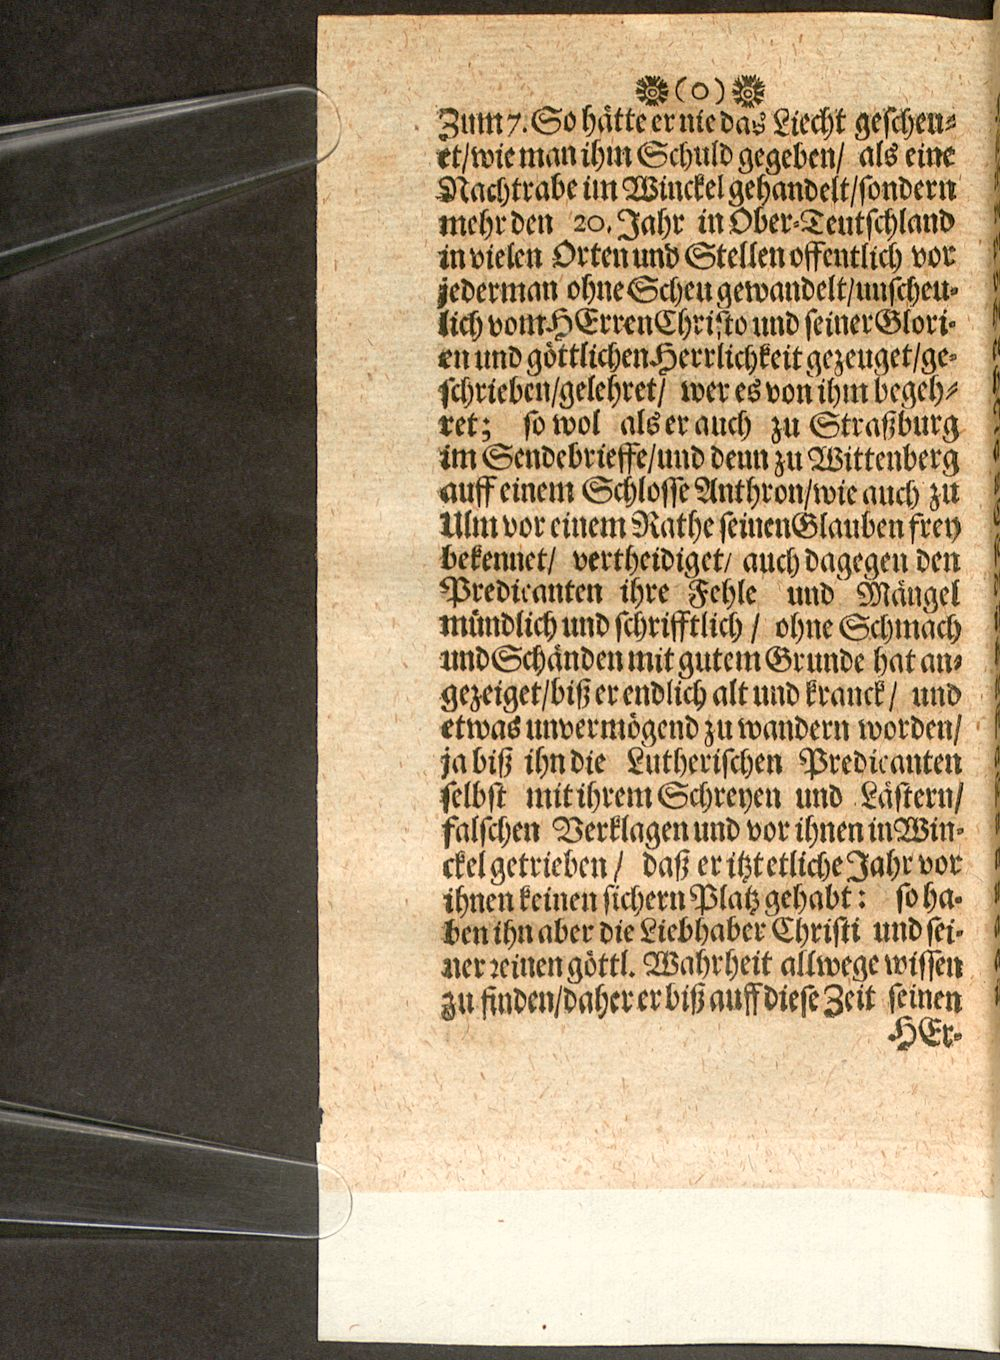 (0)
Zum 7. So hätte er nie das Liecht gescheu-
et/ wie man ihm Schuld gegeben/ als eine
Nachtrabe im Winckel gehandelt/ sondern
mehr den 20. Jahr in Ober-Teutschland
in vielen Orten und Stellen offentlich vor
jederman ohne Scheu gewandelt/ unscheu-
lich vom HErren Christo und seiner Glori-
en und göttlichen Herrlichkeit gezeuget/ ge-
schrieben/ gelehret/ wer es von ihm begeh-
ret; so wol als er auch zu Straßburg
im Sendebrieffe/ und denn zu Wittenberg
auff einem Schlosse Anthron/ wie auch zu
Ulm vor einem Rathe seinen Glauben frey
bekennet/ vertheidiget/ auch dagegen den
Predicanten ihre Fehle und Mängel
mündlich und schrifftlich/ ohne Schmach
und Schänden mit gutem Grunde hat an-
gezeiget/ biß er endlich alt und kranck/ und
etwas unvermögend zu wandern worden/
ja biß ihn die Lutherischen Predicanten
selbst mit ihrem Schreyen und Lästern/
falschen Verklagen und vor ihnen in Win-
ckel getrieben/ daß er itzt etliche Jahr vor
ihnen keinen sichern Platz gehabt: so ha-
ben ihn aber die Liebhaber Christi und sei-
ner reinen göttl. Wahrheit allwege wissen
zu finden/ daher er biß auff diese Zeit seinen
HEr-